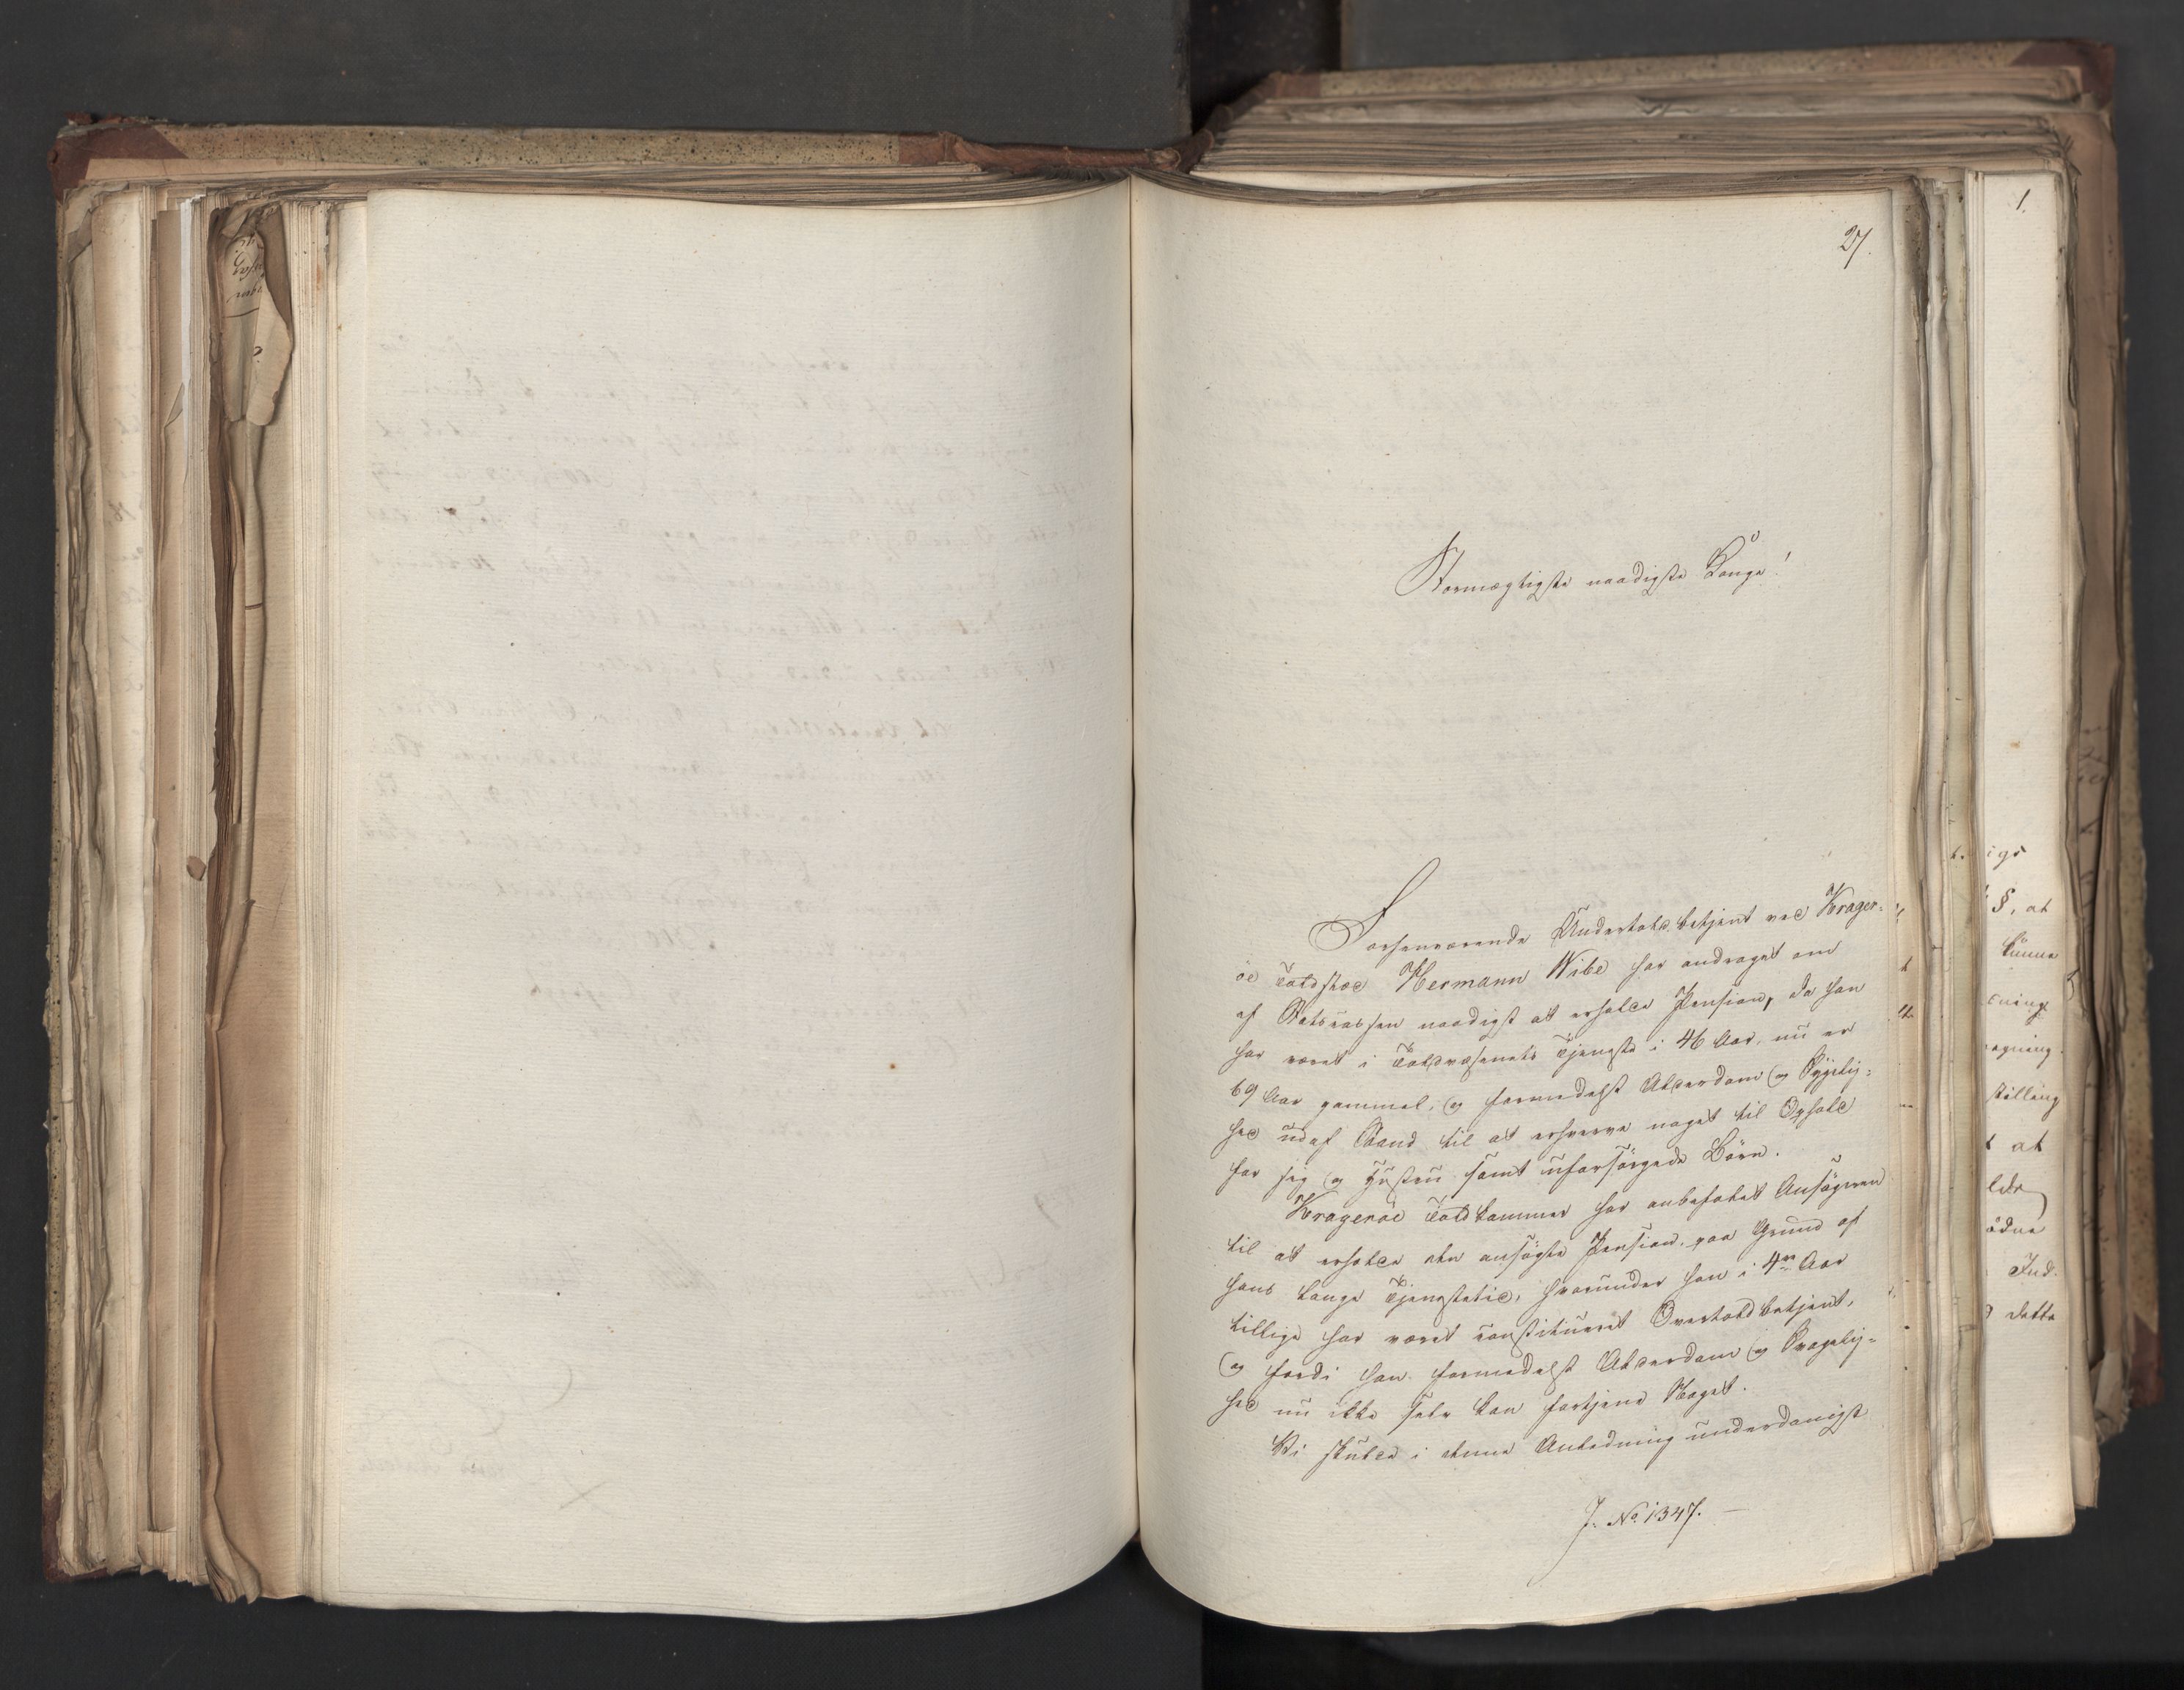 27.
Stormægtigste naadigste Konge!
Forhenværende Undertoldbetjent ved Krager-
öe Toldsted Hermann Wibe har andraget om
af Statscassen naadigst at erholde Pension, da han
har været i Toldvæsenets Tjeneste i 46 Aar, nu er
69 Aar gammel, og formedelst Alderdom og Sygelig-
hed udaf Stand til at erhverve noget til Ophold
for sig og Hustru samt uforsörgede Börn.
Krageröe Toldkammer har anbefalet Ansögeren
til at erholde den ansögte Pension, paa Grund af
hans lange Tjenestetid, hvorunder han i 4re Aar
tillige har været constitueret Overtoldbetjent,
og fordi han formedelst Alderdom og Svagelig-
hed nu ikke selv kan fortjene Noget.
Vi skulde i denne Anledning underdanigst
J. No. 1347.
1.
igs
§, at
kunne
ening
egning
stilling
at
lde
ödne
Ind-
detto